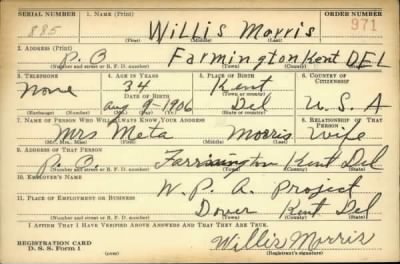 SERIAL NUMBER 1. NAME (Print) ORDER NUMBER
885 Willis Morris 971
(First) (Middle) (Last)
2. ADDRESS (Print)
P.O. Farmington Kent DEL
(Number and street or R. F. D. number) (Town) (County) (State)
3. TELEPHONE 4. AGE IN YEARS 5. PLACE OF BIRTH 6. COUNTRY OF CITIZENSHIP
None 34 Kent
DATE OF BIRTH
Aug 9-1906 Del U.S.A
(Exchange) (Number) (Mo.) (Day) (Yr.) (State or country)
7. NAME OF PERSON WHO WILL ALWAYS KNOW YOUR ADDRESS 8. RELATIONSHIP OF THAT PERSON
Mrs Meta Morris Wife
(Mr., Mrs., Miss) (First) (Middle) (Last)
9. ADDRESS OF THAT PERSON
P.O. Farmington Kent Del
(Number and street or R. F. D. number) (Town) (County) (State)
10. EMPLOYER'S NAME
W.P.A. Project
11. PLACE OF EMPLOYMENT OR BUSINESS
Dover Kent Del
(Number and street or R. F. D. number) (Town) (County) (State)
I AFFIRM THAT I HAVE VERIFIED ABOVE ANSWERS AND THAT THEY ARE TRUE.
REGISTRATION CARD
D. S. S. Form 1 (over) Willis Morris